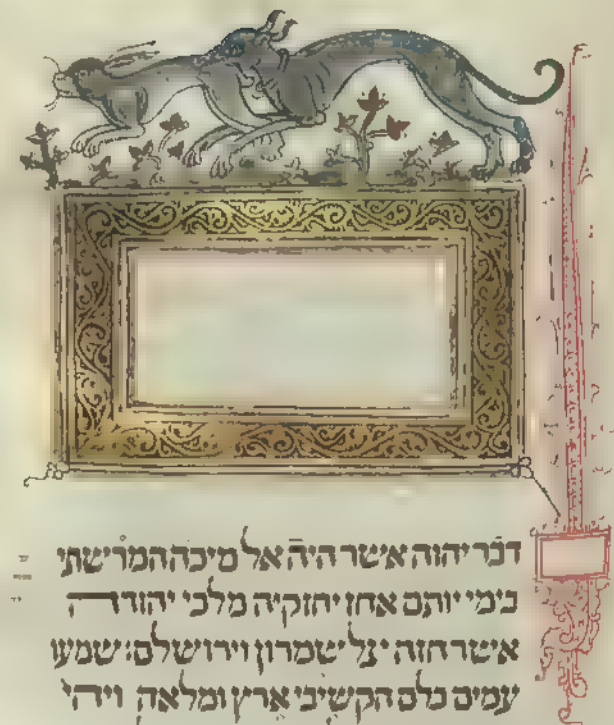 דבר יהוה אשר היה אל מיכה המרשתי
בימי יותם אחז יחזקיה מלכי יהודה
אשר חזה על שמרון וירושלם: שמעו
עמים כלם הקשיבי ארץ ומלאה ויהי